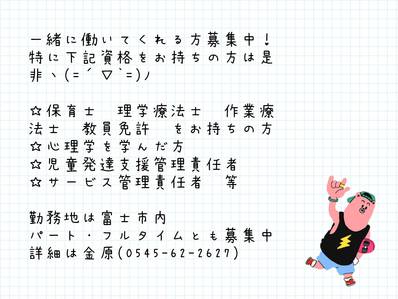 一緒に働いてくれる方募集中！
特に下記資格をお持ちの方は是
非ヽ(=´▽`=)ﾉ
☆保育士　理学療法士　作業療
法士　教員免許　をお持ちの方
☆心理学を学んだ方
☆児童発達支援管理責任者
☆サービス管理責任者　等
勤務地は富士市内
パート・フルタイムとも募集中
詳細は金原(0545-62-2627)